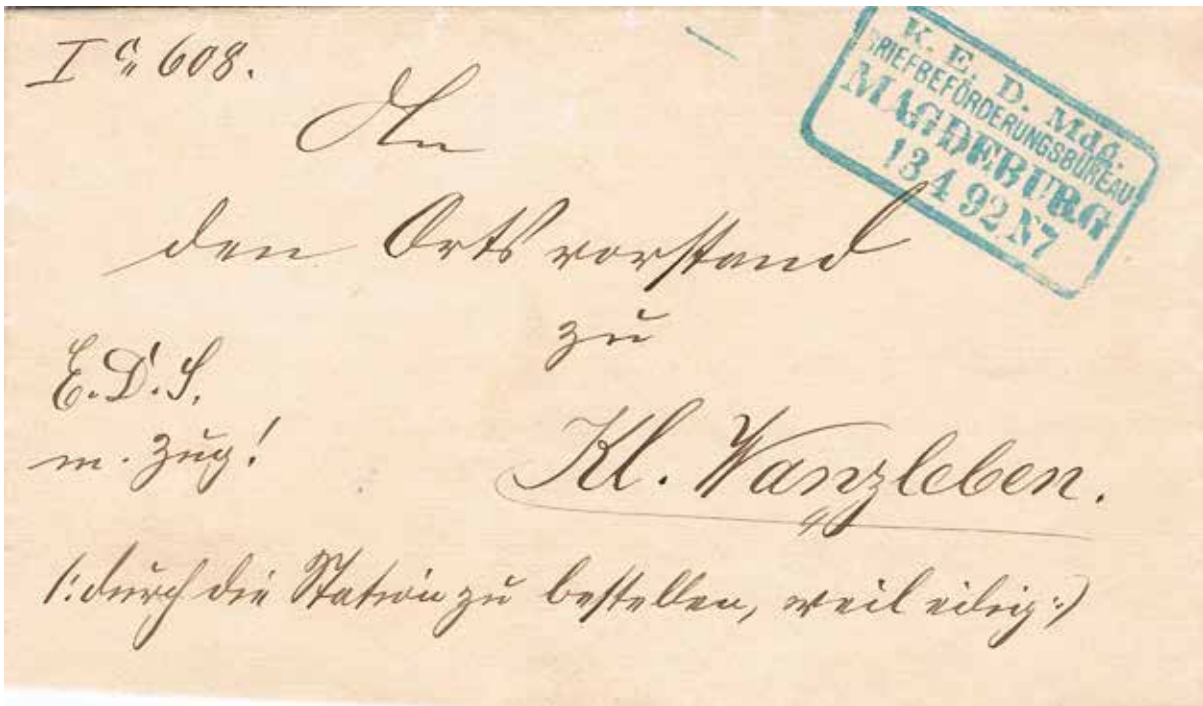 I c 608.
K. E. D. Mag.
BRIEFBEFÖRDERUNGSBUREAU
MAGDEBURG
13 4 92 N7
An
den Ortsvorstand
zu
E. D. S.
m. Zug!
Kl. Wanzleben.
/: durch die Station zu bestellen, weil eilig :/